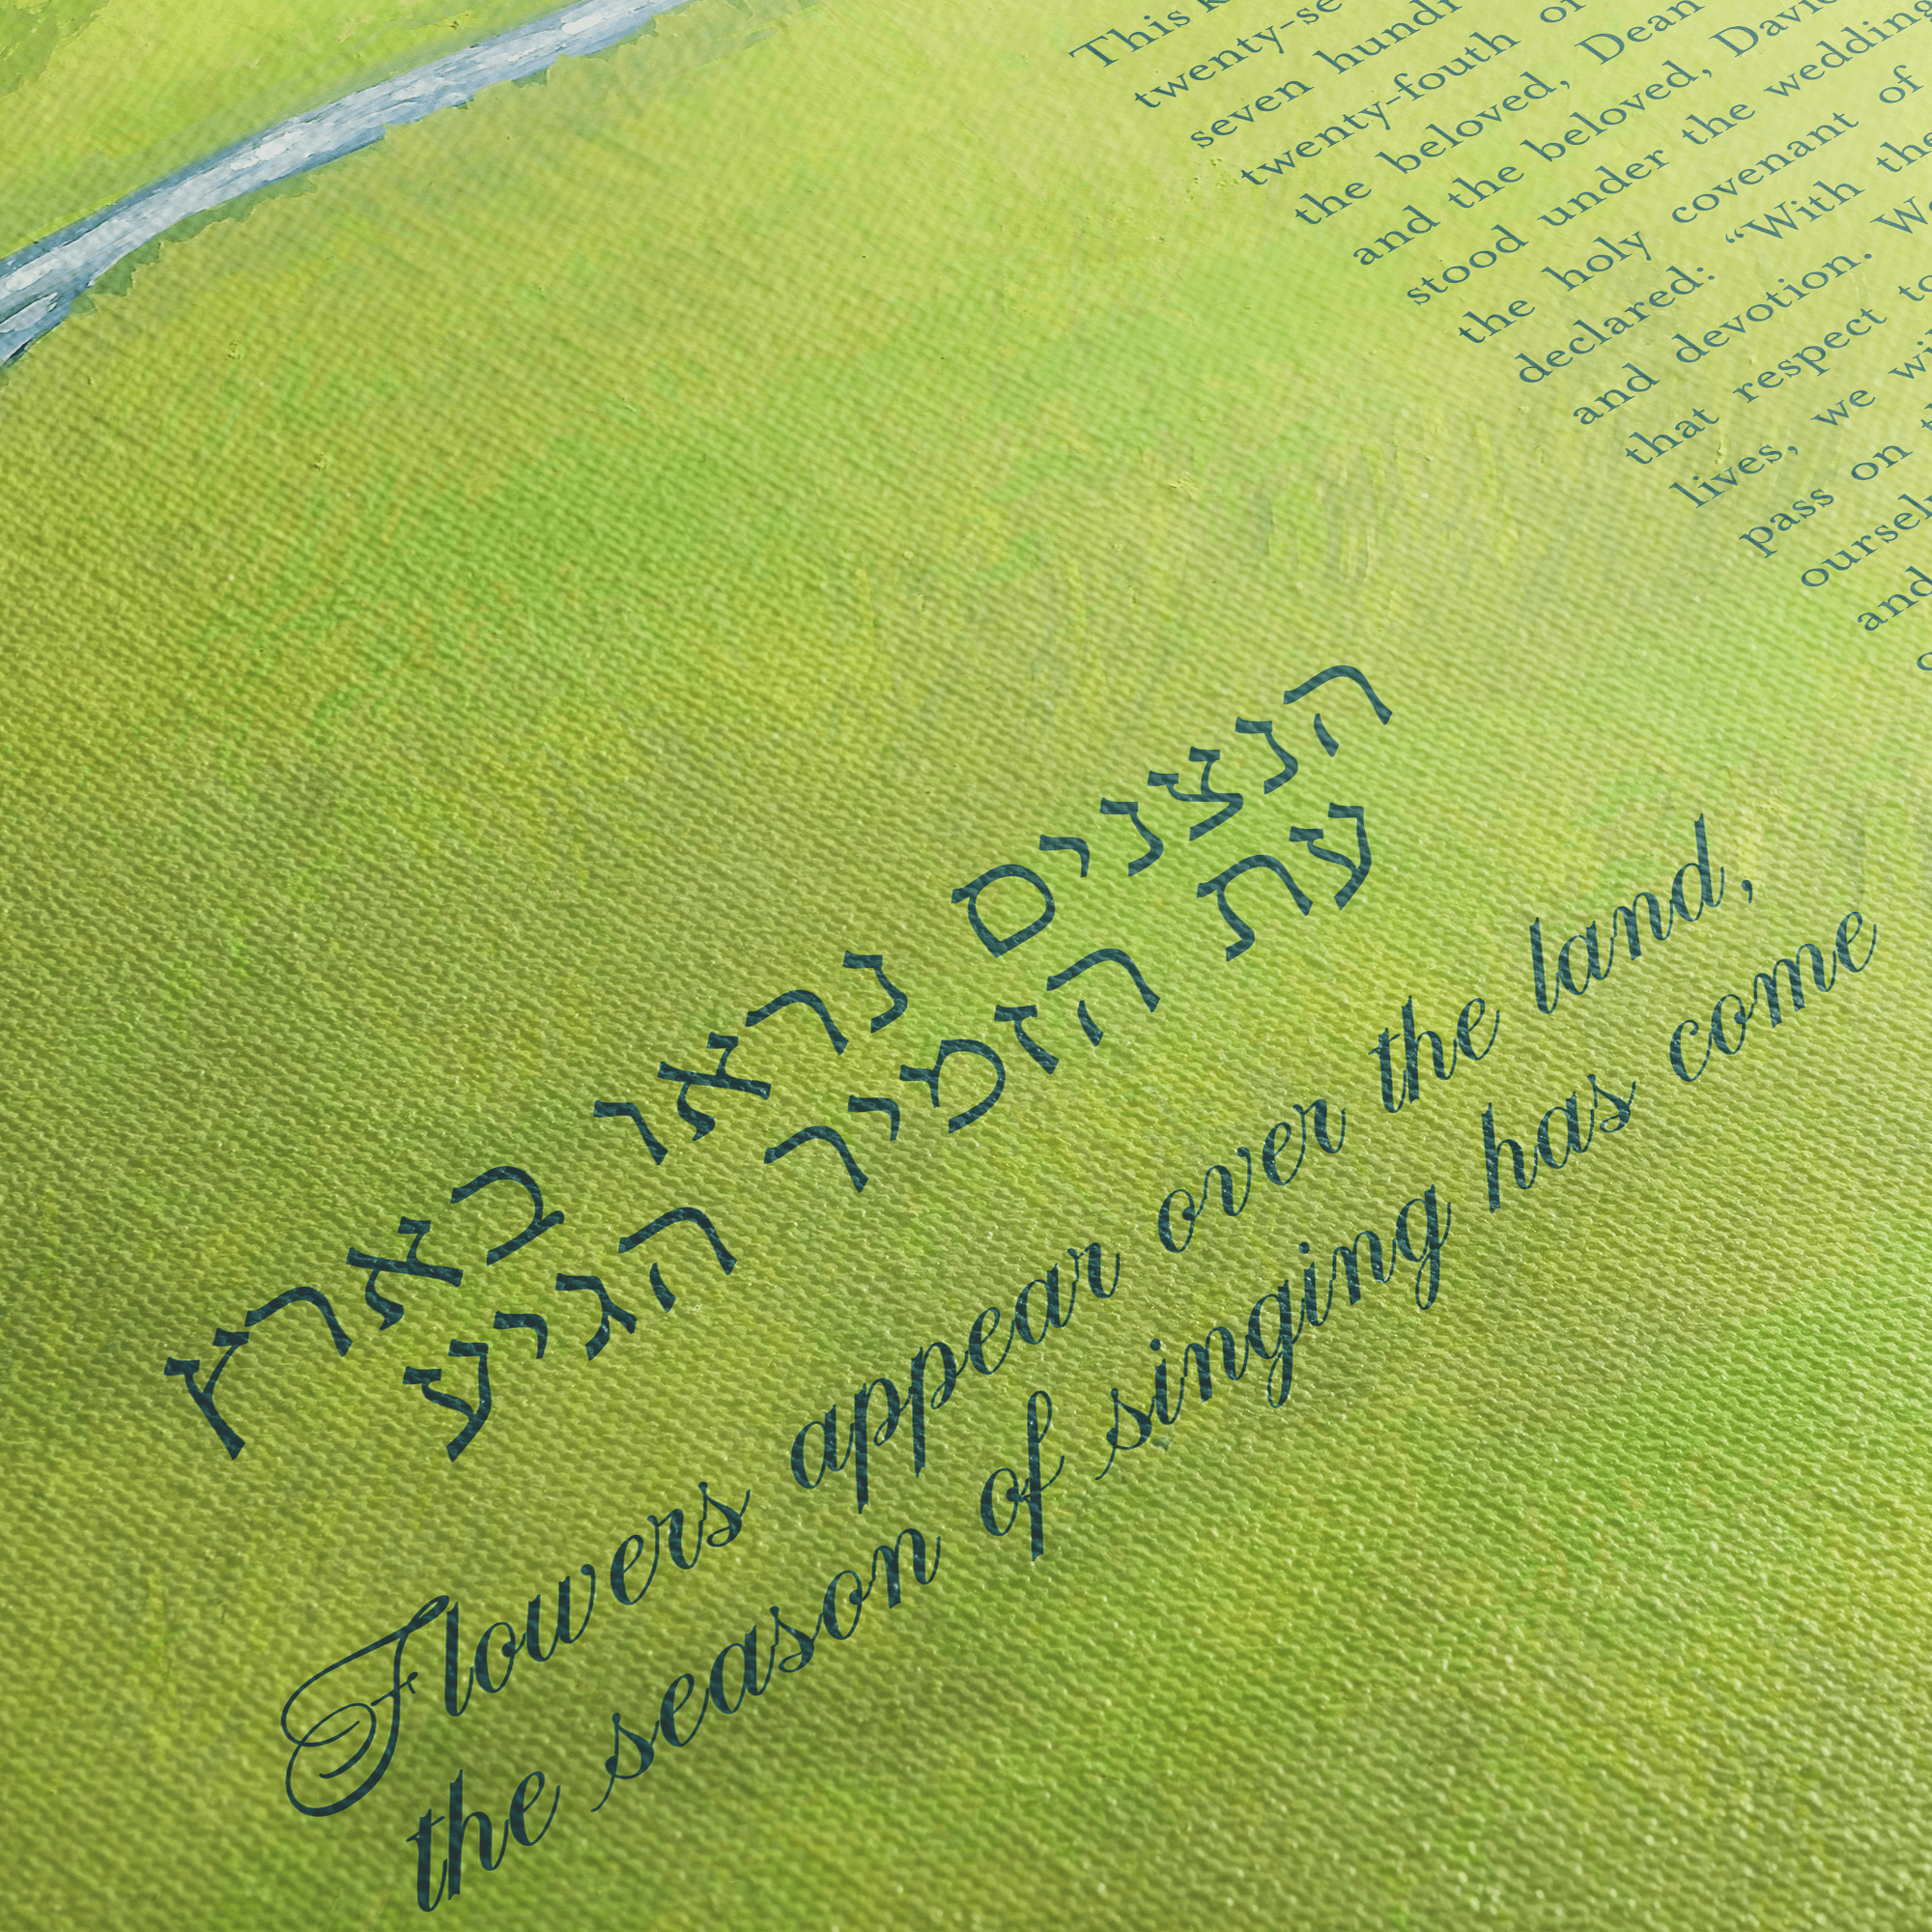 This
twenty-se
seven hundr
twenty-fouth or
the beloved, Dean
and the beloved, David
stood under the wedding
the holy covenant of
declared: “With the
and devotion. We
that respect to
lives, we wi
pass on t
oursel
and
הנצנים נראו בארץ
עת הזמיר הגיע
Flowers appear over the land,
the season of singing has come